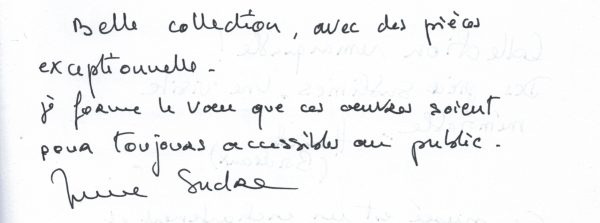 Belle collection, avec des pièces
exceptionnelle.
je forme le voeu que ces oeuvres soient
pour toujours accessibles au public.